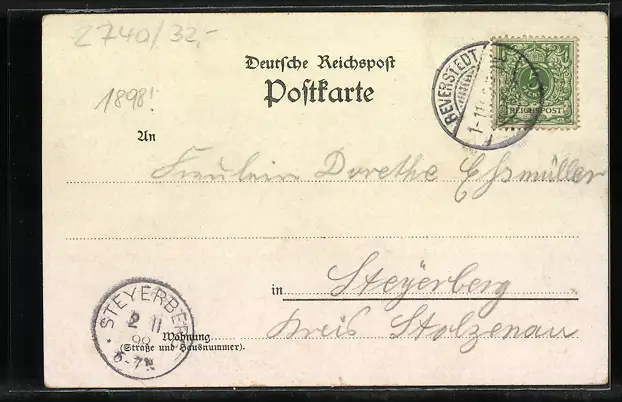 274a/32,-
Deutsche Reichspost
Postkarte
1898!
REICHSPOST
BEVERSTEDT
1-11
An
Fräulein Dorethe Eßmüller
in Steyerberg
Kreis Stolzenau
STEYERBERG
2 11
98
6-7N
Wohnung
(Straße und Hausnummer).